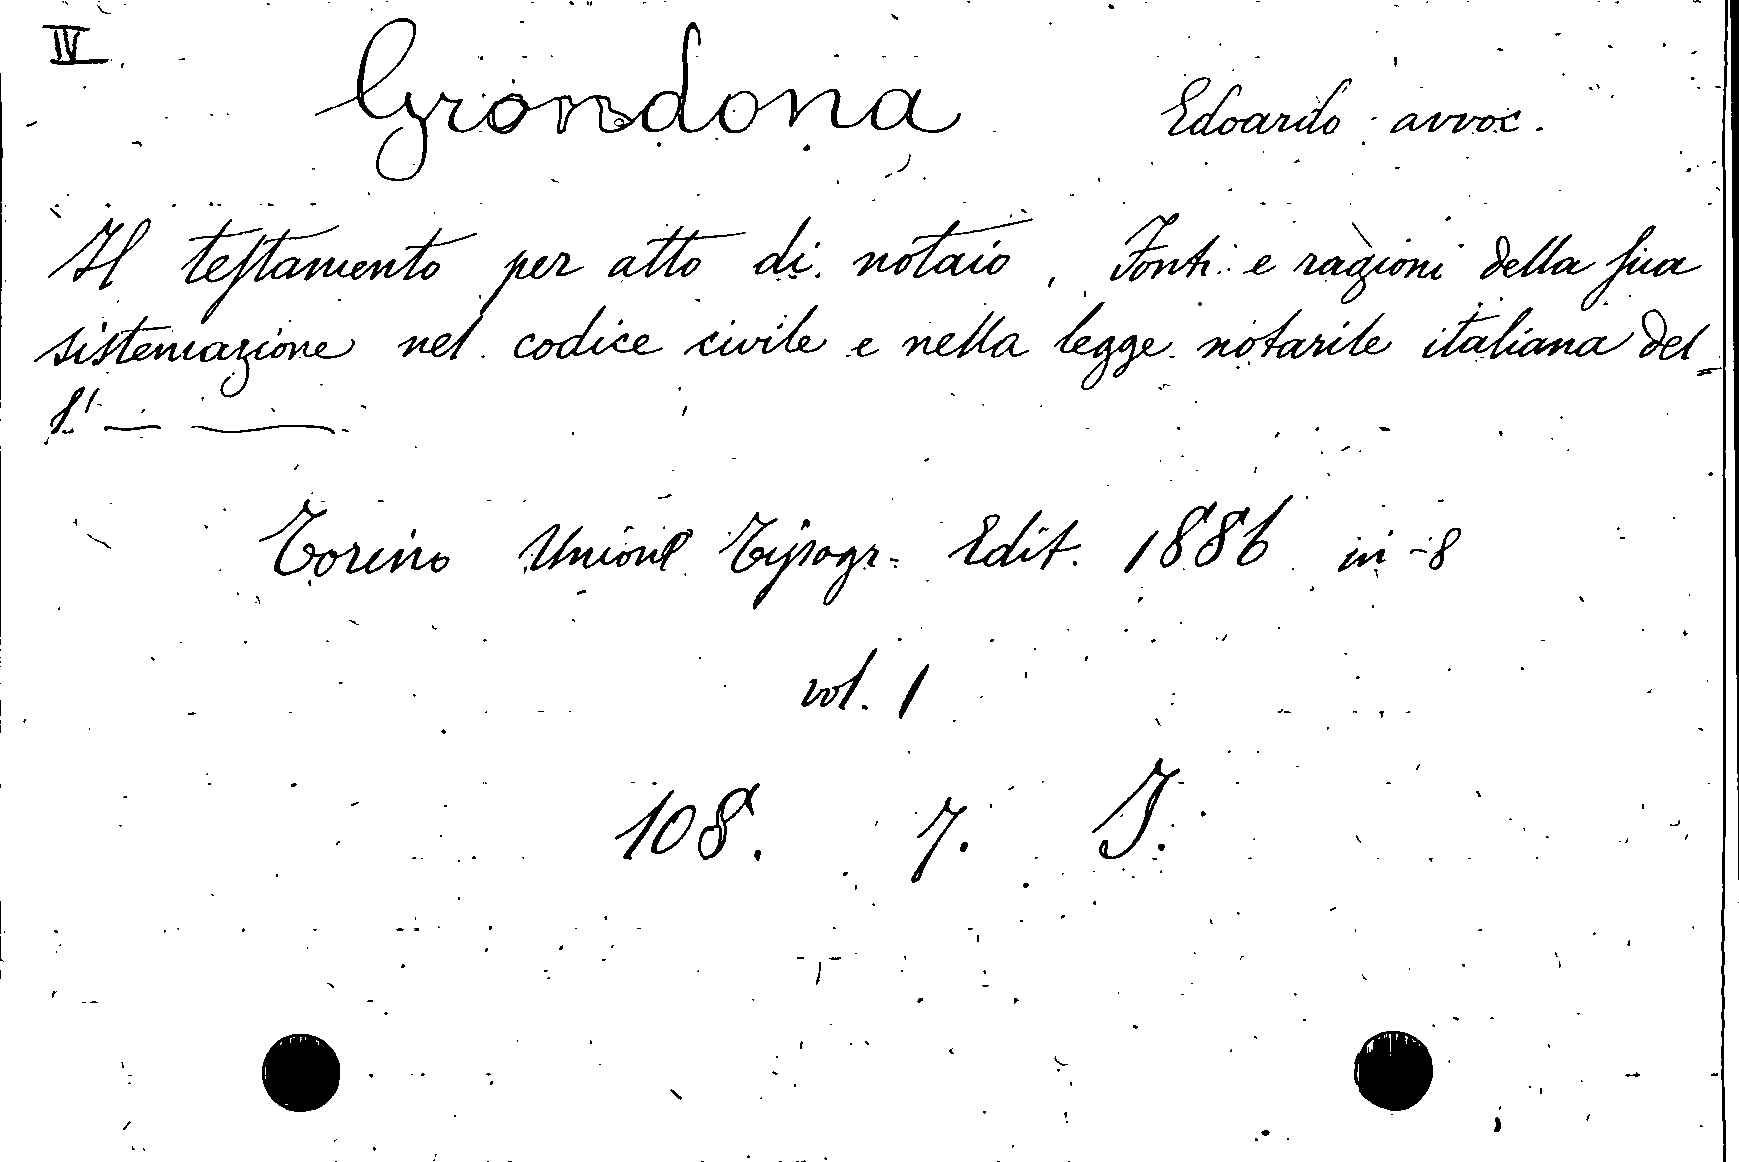 IV
Grondona Edoardo avvoc.
Il testamento per atto di notaio, Fonti e ragioni della sua
sistemazione nel codice civile e nella legge notarile italiana del=
l'
Torino Unione Tipogr= Edit. 1886 in-8
vol. 1
108. 7. I.